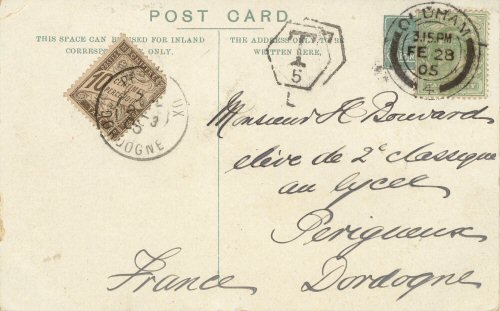 POST CARD
THIS SPACE CAN BE USED FOR INLAND
CORRESPONDENCE ONLY.
THE ADDRESS ONLY TO BE
WRITTEN HERE.
10
DORDOGNE
T
1
5
L
OLDHAM
3.15 PM
FE 28
05
4
Monsieur H Bouvard
élève de 2e classique
au lycée
Périgueux
France Dordogne